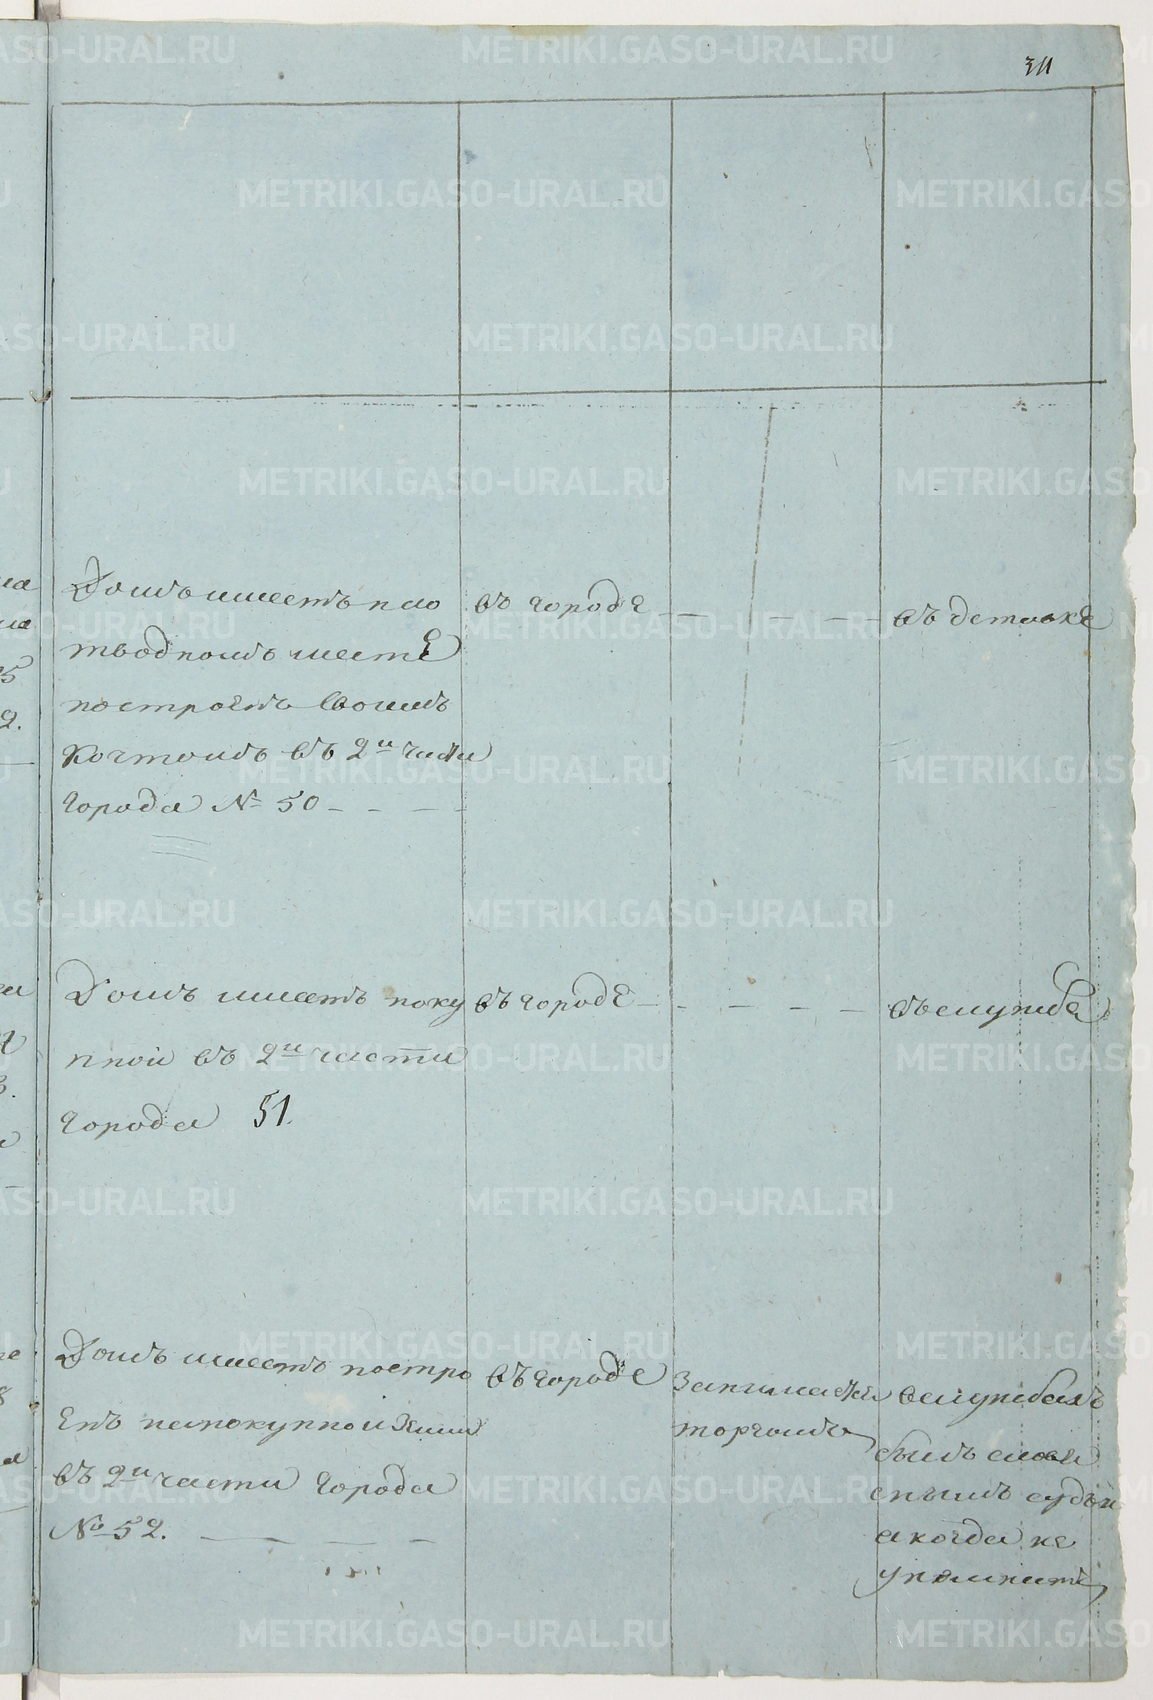 311
Домъ имеетъ по
тводномъ месте
построенъ своимъ
коштомъ въ 2й части
города № 50
въ городе
въ
Домъ имеетъ поку
пной въ 2й части
города 51.
въ городе
въ службе
Домъ имеетъ постро
енъ на покупной земли
въ 2й части города
№ 52.
въ городе
занимается
торгомъ
въ службахъ
былъ слове
снымъ судьи
а когда не
упомнитъ